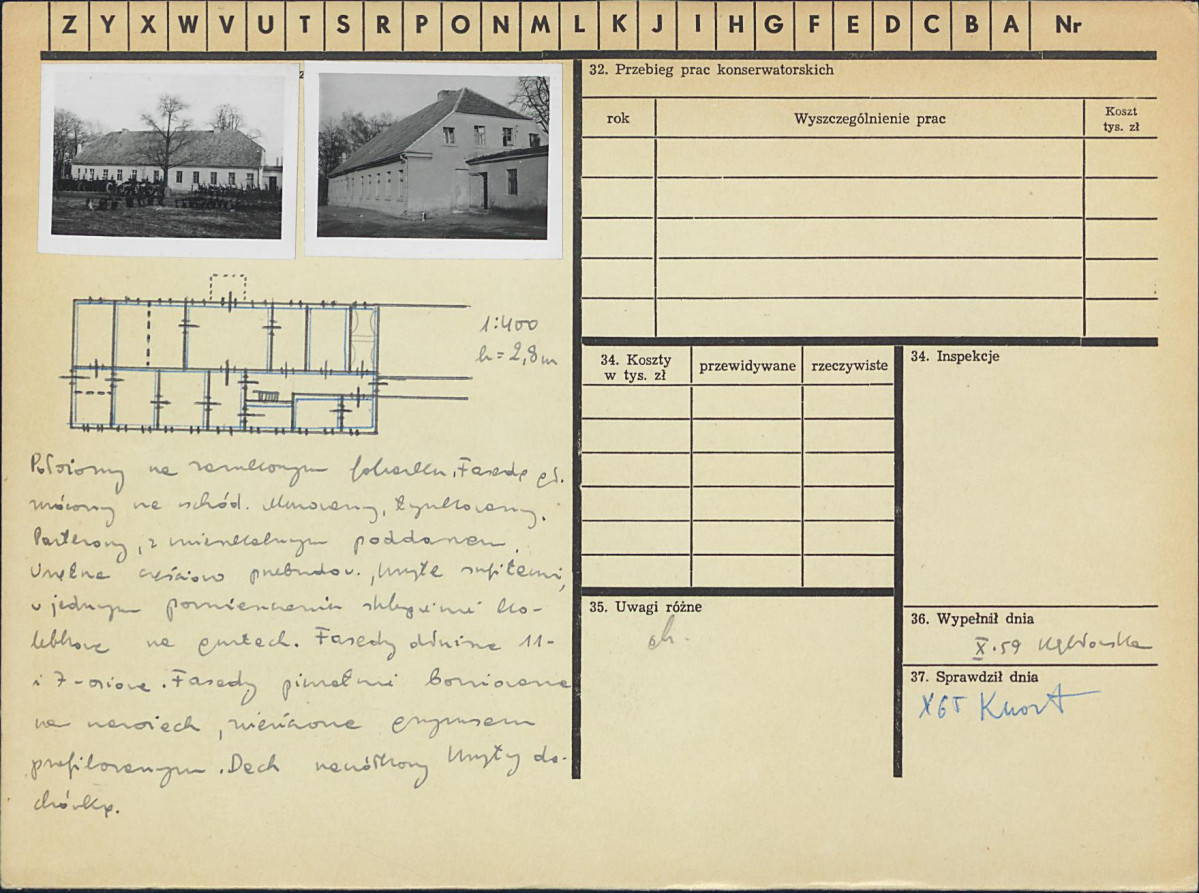 Z Y X W V U T S R P O N M L K J I H G F E D C B A Nr
32. Przebieg prac konserwatorskich
rok
Wyszczególnienie prac
Koszt
tys. zł
1:400
h = 2,8 m
Położony na zamkowym folwarku. Fasadą gł.
zwócony na wschód. Murowany, tynkowany.
Parterowy, z mieszkalnym poddaszem.
Wnętrza częściowo przebudow., kryte sufitami,
w jednym pomieszczeniu sklepienie ko-
lebkowe na gurtach. Fasady dłuższe 11-
i 7-osiowe. Fasady boniowane
na narożach, zwieńczone gzymsem
profilowanym. Dach naczółkowy kryty da-
chówką.
34. Koszty
w tys. zł
przewidywane
rzeczywiste
34. Inspekcje
35. Uwagi różne
36. Wypełnił dnia
X.59
37. Sprawdził dnia
X 65